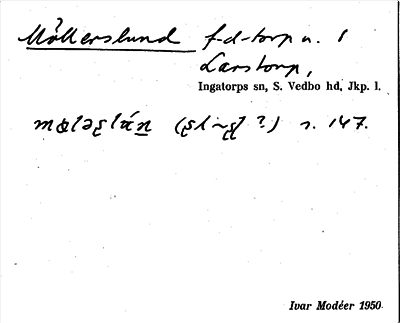 Möllerslund f-d-torp u. 1
Larstorp,
Ingatorps sn, S. Vedbo hd, Jkp. l.
s. 147.
Ivar Modéer 1950